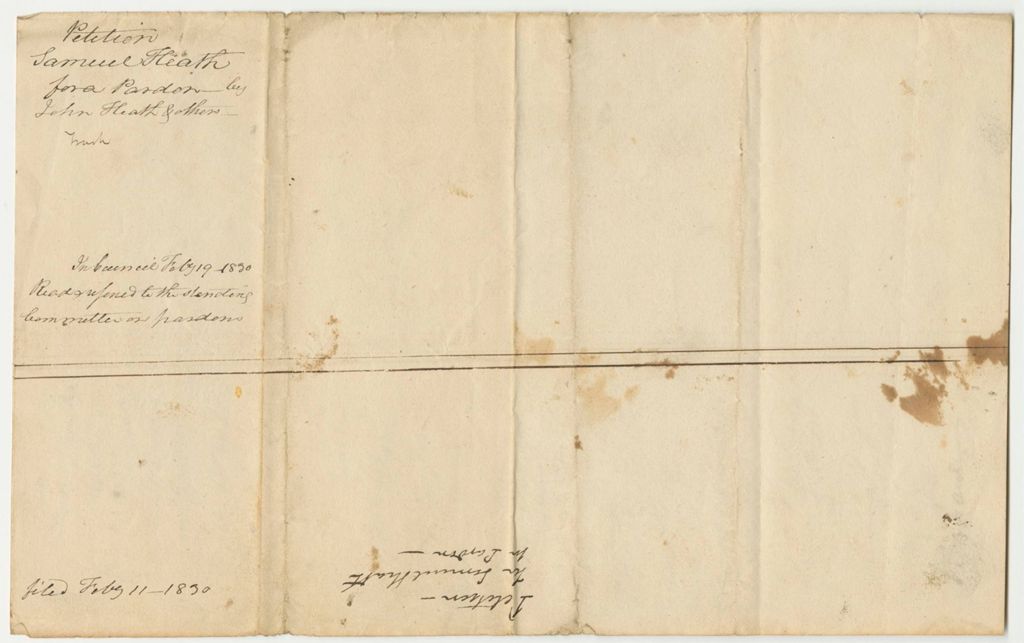 Petition
Samuel Heath
for a Pardon by
John Heath & others
In Council Feby 19 1830
Read & refered to the standing
Committee on pardons
filed Feby 11 1830
Petition
for Samuel Heath
for Pardon